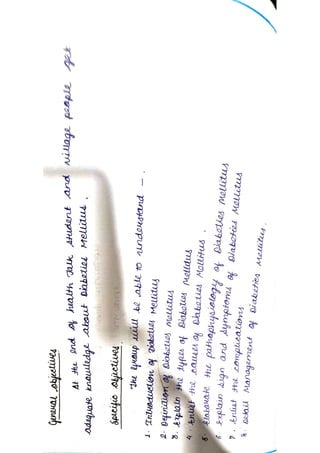 General objectives
At the end of health Talk student and village people get
adequate knowledge about Diabetes Mellitus.
Specific objectives
The group will be able to understand -.
1. Introduction of Diabetes Mellitus
2. Definition of Diabetes mellitus
3. Explain the types of Diabetes Mellitus
4. Enlist the causes of Diabetes Mellitus.
5. Elaborate the pathophysiology of Diabetes Mellitus
6. Explain sign and symptoms of Diabetes Mellitus
7. Enlist the complications
8. Detail Management of Diabetes Mellitus.